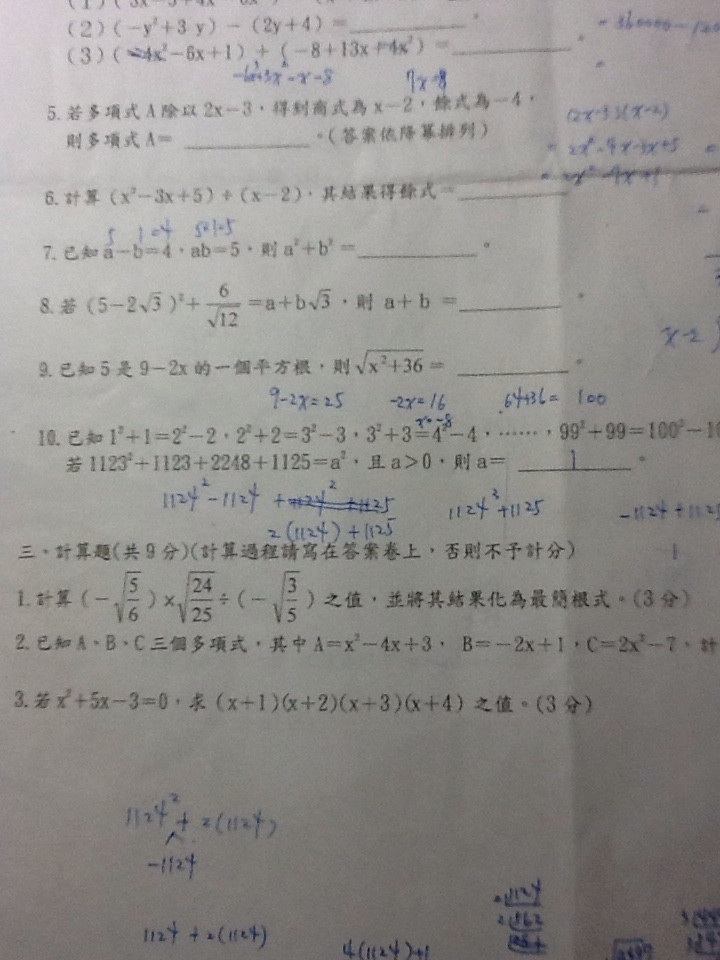 (2) (−y²+3 y) − (2y+4) = ________。
(3) (−4x²−6x+1) + (−8+13x+4x²) = ________。
7x−8
5. 若多項式 A 除以 2x−3，得到商式為 x−2，餘式為−4，
(2x−3)(x−2)
則多項式 A= ________。(答案依降冪排列)
6. 計算 (x²−3x+5) ÷ (x−2)，其結果得餘式= ________
7. 已知 a−b=4，ab=5，則 a²+b² = ________。
8. 若 (5−2√3)²+6/√12 =a+b√3，則 a+b = ________。
x−2
9. 已知 5 是 9−2x 的一個平方根，則√(x²+36) = ________。
9−2x=25 −2x=16 64+36= 100
x=−8
10. 已知 1²+1=2²−2，2²+2=3²−3，3²+3=4²−4，……，99²+99=100²−10
若 1123²+1123+2248+1125=a²，且 a>0，則 a= 1 。
1124²−1124 + 1124²+1125 1124²+1125 −1124+112
2(1124)+1125
三、計算題(共 9 分)(計算過程請寫在答案卷上，否則不予計分) 1
1. 計算 (−√(5/6))×√(24/25)÷(−√(3/5)) 之值，並將其結果化為最簡根式。(3 分)
2. 已知 A、B、C 三個多項式，其中 A=x²−4x+3， B=−2x+1，C=2x²−7、計
3. 若 x²+5x−3=0，求 (x+1)(x+2)(x+3)(x+4) 之值。(3 分)
1124²+2(1124)
−1124
1124 + 2(1124)
2 1124
2 562
4(1124)+1